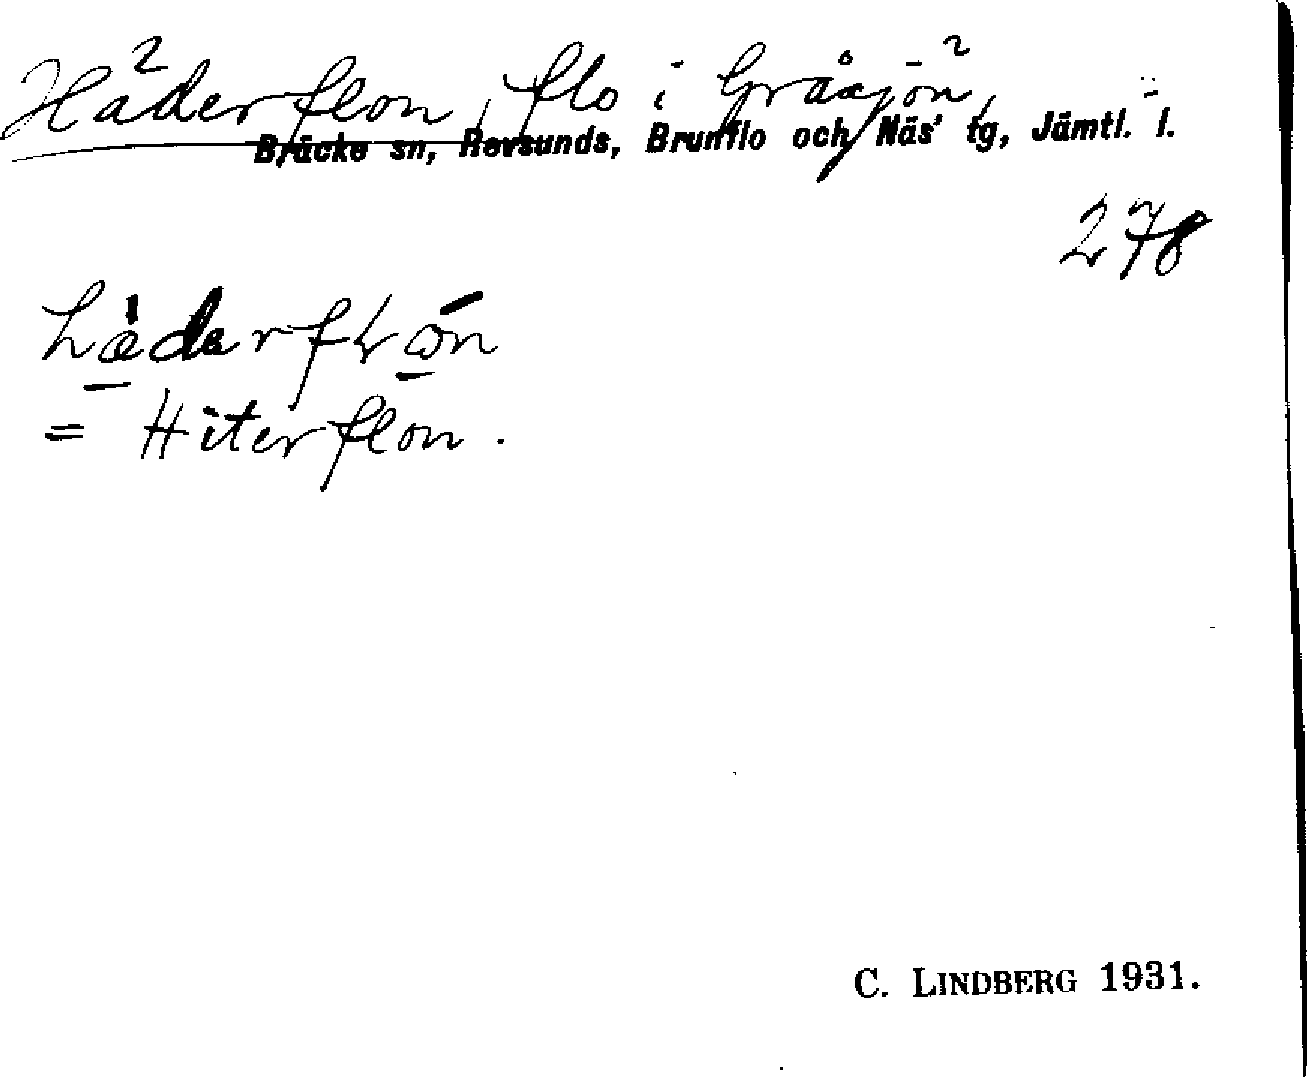 Häderflon, flo i Gråsjön,
Bräcke sn, Revsunds, Brunflo och Näs' tg, Jämtl. l.
278
= Hiterflon.
C. LINDBERG 1931.